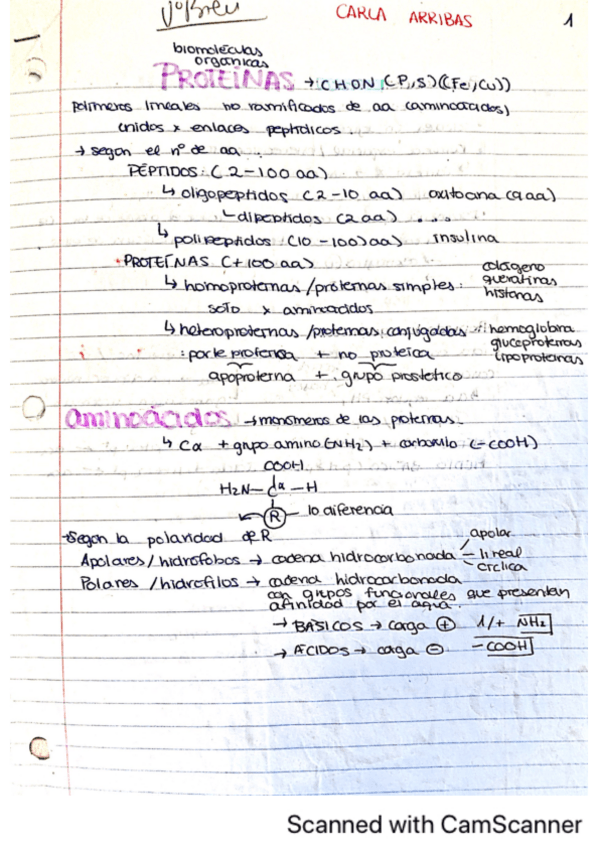 CARLA ARRIBAS 1
biomoléculas
orgánicas
PROTEÍNAS → CHON (P,S) ((Fe, Cu))
Polímeros lineales no ramificados de aa (aminoácidos)
unidos x enlaces peptídicos.
→ según el nº de aa
PÉPTIDOS: (2-100 aa)
↳ oligopéptidos (2-10 aa) oxitocina (9aa)
↳ dipéptidos (2 aa) ....
↳ polipéptidos (10-100) aa) insulina
• PROTEÍNAS (+100 aa)
↳ homoproteínas / proteínas simples: colágeno
queratinas
histonas
solo x aminoácidos
↳ heteroproteínas / proteínas conjugadas: hemoglobina
gluceproteínas
lipoproteínas
: parte proteica + no proteica
apoproteína + grupo prostético
aminoácidos → monómeros de las proteínas.
↳ Cα + grupo amino (NH2) + carboxilo (-COOH)
COOH
H2N-Cα-H
R lo diferencia
Según la polaridad de R
Apolares / hidrófobos → cadena hidrocarbonada apolar
lineal
cíclica
Polares / hidrófilos → cadena hidrocarbonada
con grupos funcionales que presentan
afinidad por el agua.
→ BÁSICOS → carga + 1/+ NH2
→ ÁCIDOS → carga - -COOH
Scanned with CamScanner